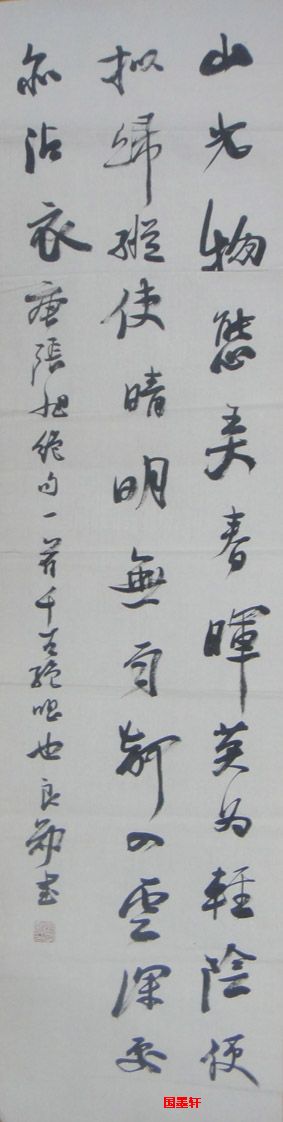 山光物態弄春暉莫為輕陰便
拟歸縱使晴明無雨色入雲深處
亦沾衣 唐張旭絕句一首千古絕唱也 良 書
国墨轩